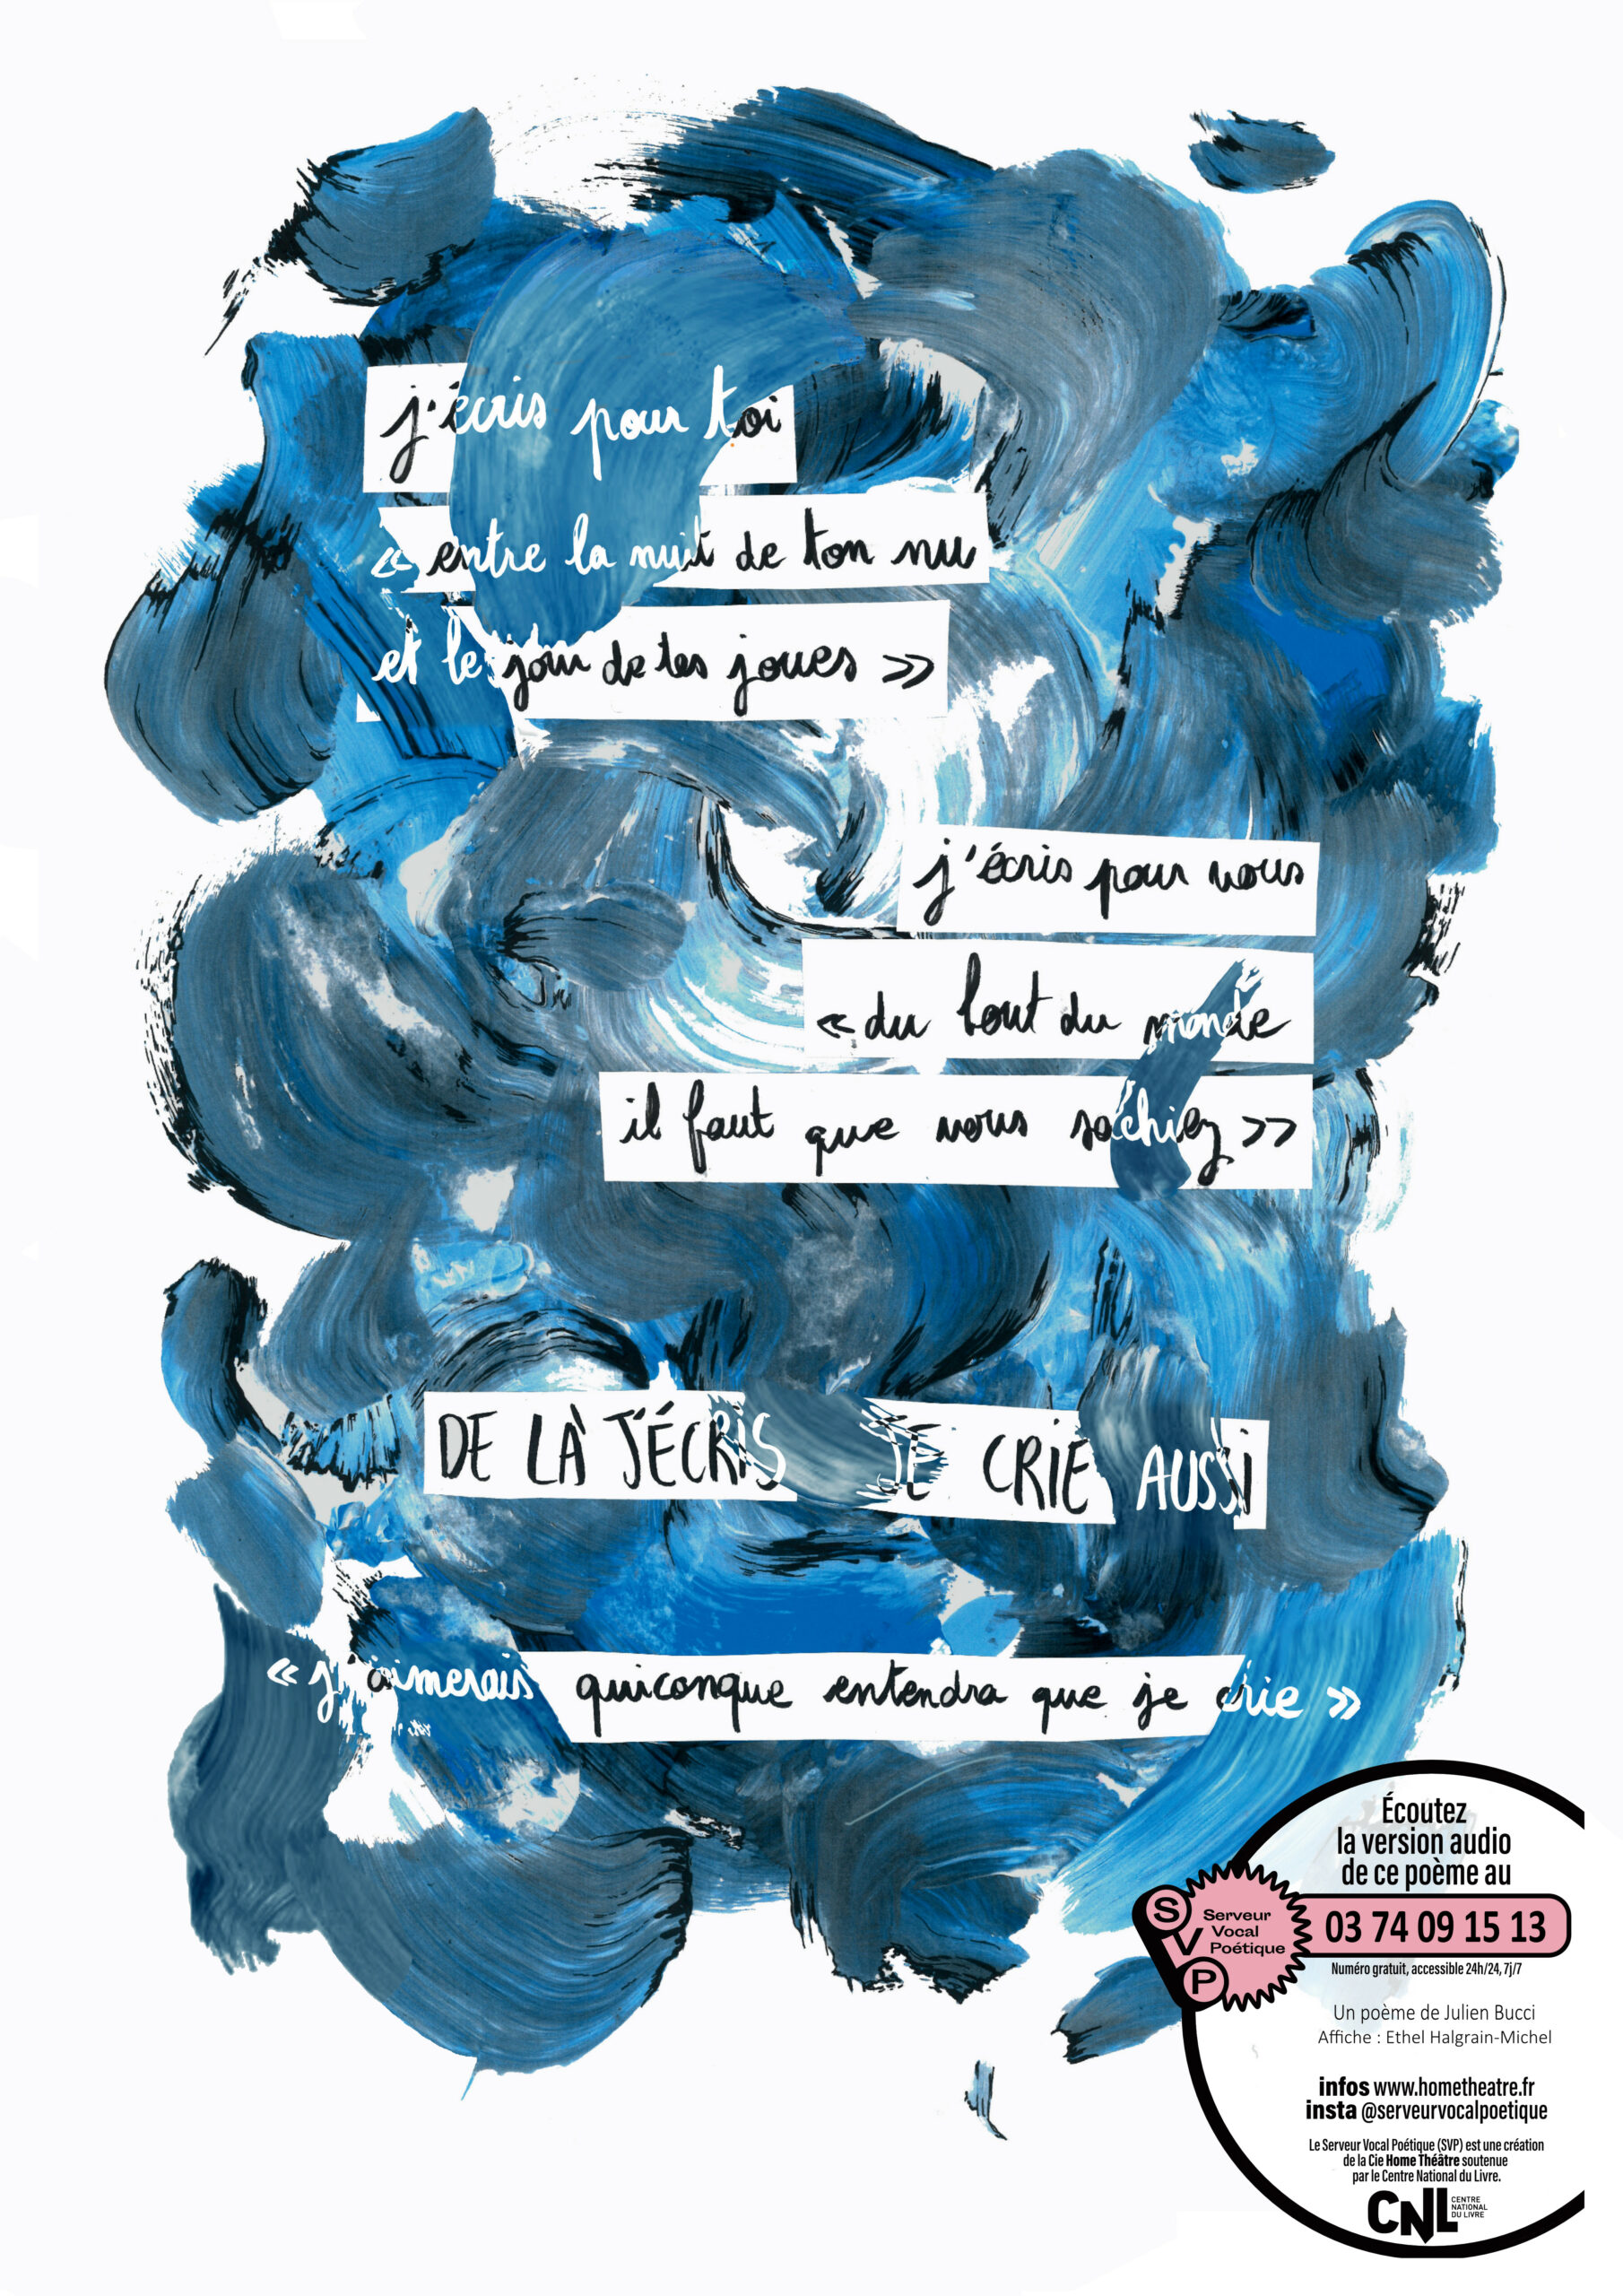 j'écris pour toi
« entre la nuit de ton nu
et le jour de tes joues »
j'écris pour vous
« du bout du monde
il faut que vous sachiez »
DE LÀ J'ÉCRIS JE CRIE AUSSI
« j'aimerais quiconque entendra que je crie »
Écoutez
la version audio
de ce poème au
SVP
Serveur
Vocal
Poétique
03 74 09 15 13
Numéro gratuit, accessible 24h/24, 7j/7
Un poème de Julien Bucci
Affiche : Ethel Halgrain-Michel
infos www.hometheatre.fr
insta @serveurvocalpoetique
Le Serveur Vocal Poétique (SVP) est une création
de la Cie Home Théâtre soutenue
par le Centre National du Livre.
CNL
CENTRE
NATIONAL
DU LIVRE